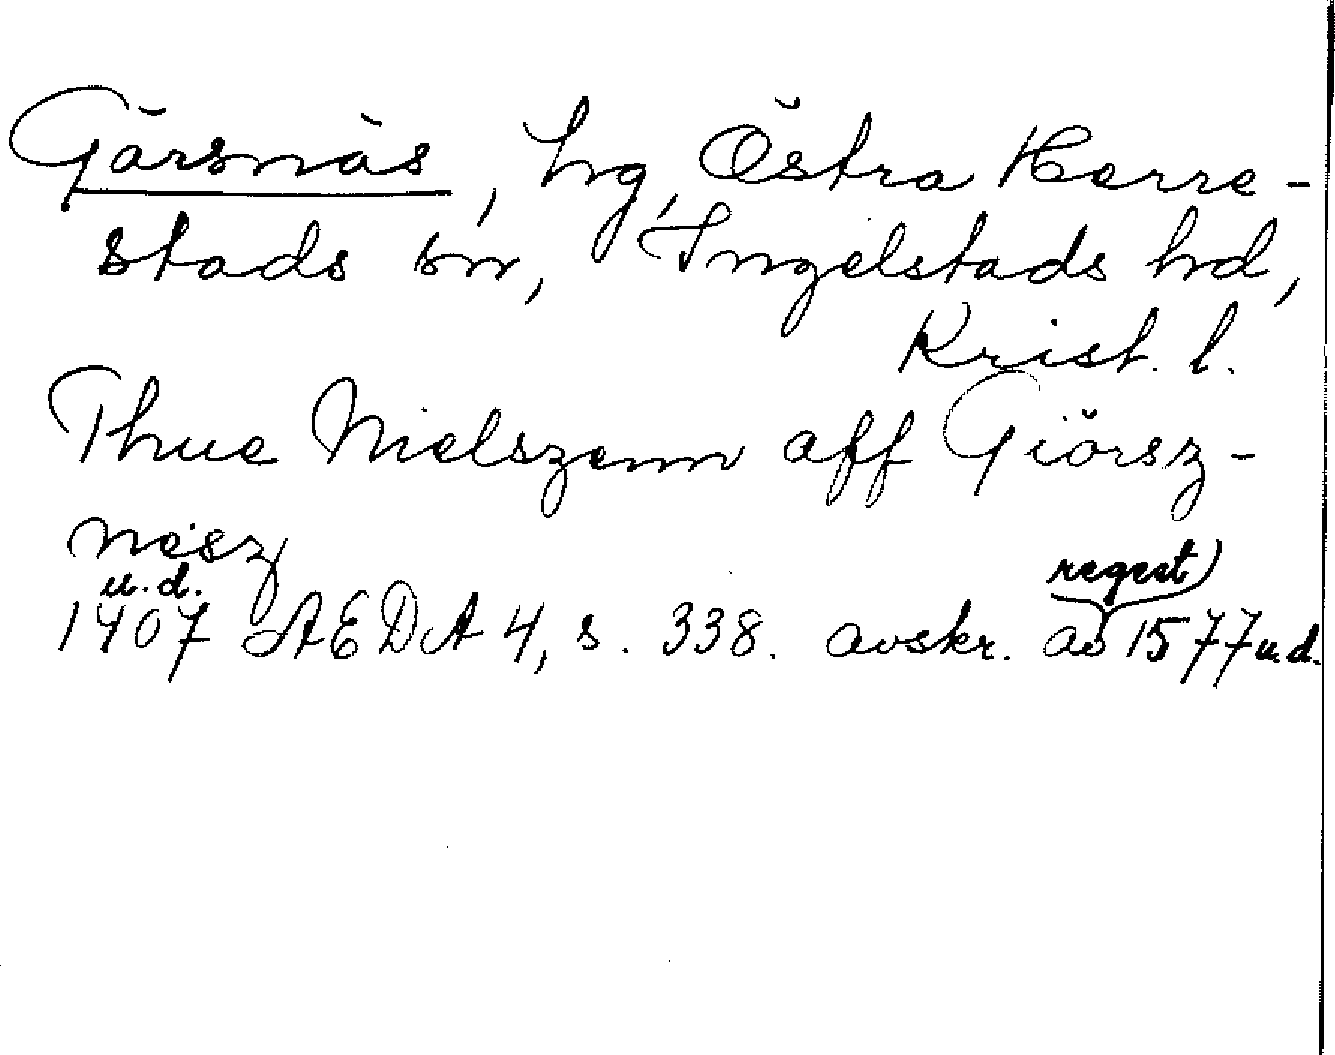 Gärsnäs, hg, Östra Herre-
stads sn, Ingelstads hd,
Krist. l.
Thue Nielszenn aff Giörsz-
nesz
u.d. regest)
1407 AEDA 4, s. 338. avskr. av 1577 u.d.